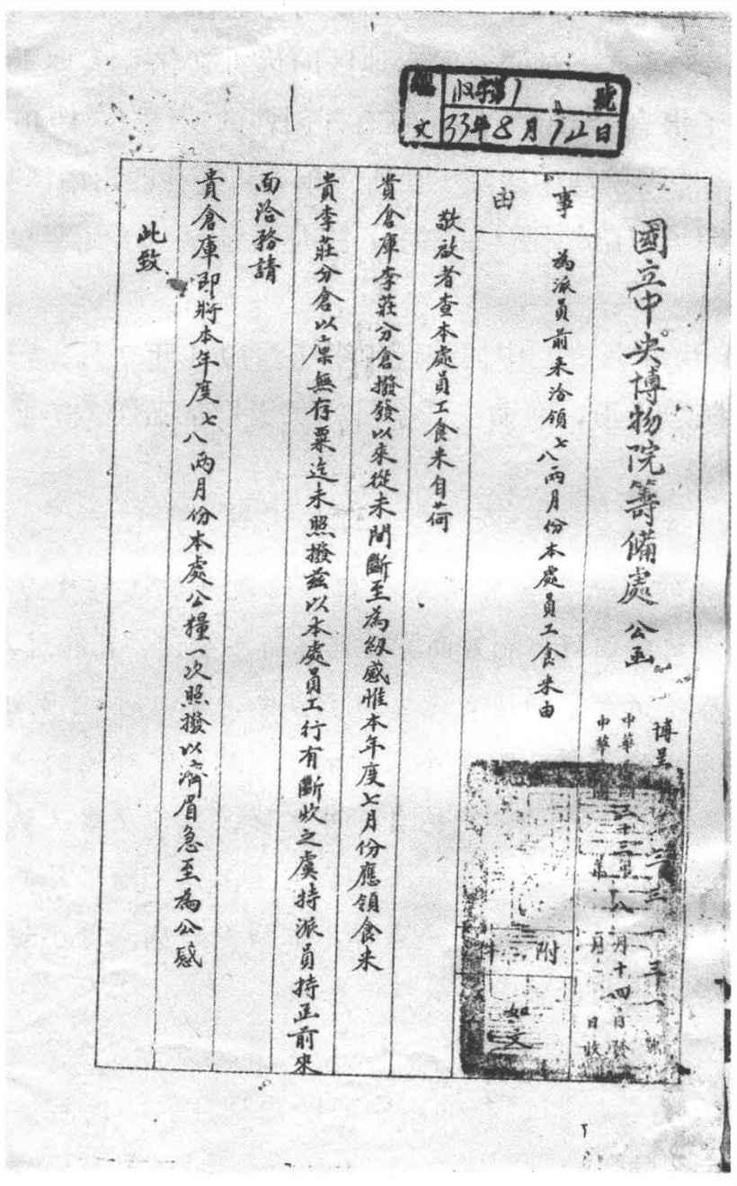 收字第 號
文 33年8月 日
國立中央博物院籌備處公函
博呈
三三一三一號
中華 三十三年八月十四日發
中華 年 月 日收
附件
如文
事由
為派員前來洽領七八兩月份本處員工食米由
敬啟者查本處員工食米自荷
貴倉庫李莊分倉撥發以來從未間斷至為級感惟本年度七月份應領食米
貴李莊分倉以稟無存粟迄未照撥茲以本處員工行有斷炊之虞特派員持正前來
面洽務請
貴倉庫即將本年度七八兩月份本處公糧一次照撥以濟眉急至為公感
此致